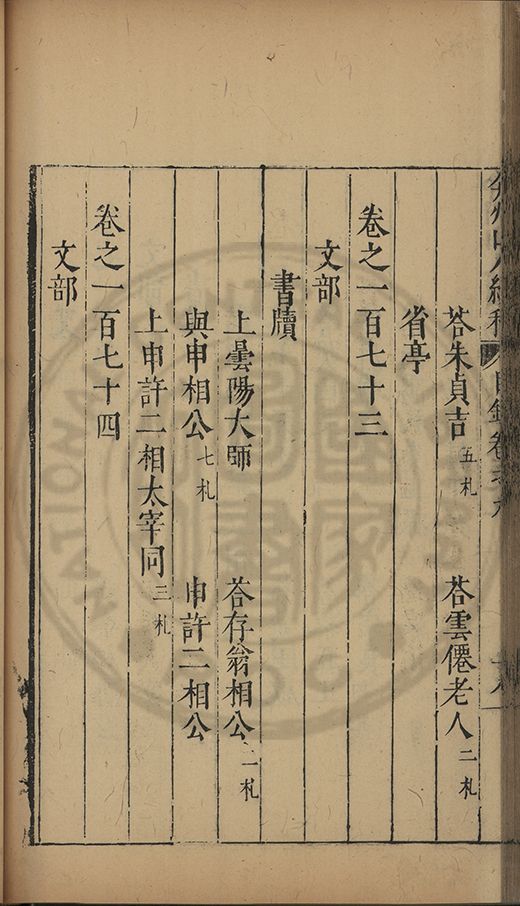 弇州山人續稿 目錄卷之九
荅朱貞吉五札 荅雲僊老人二札
省亭
卷之一百七十三
文部
書牘
上曇陽大師 荅存翁相公二札
與申相公七札 申許二相公
上申許二相太宰同三札
卷之一百七十四
文部